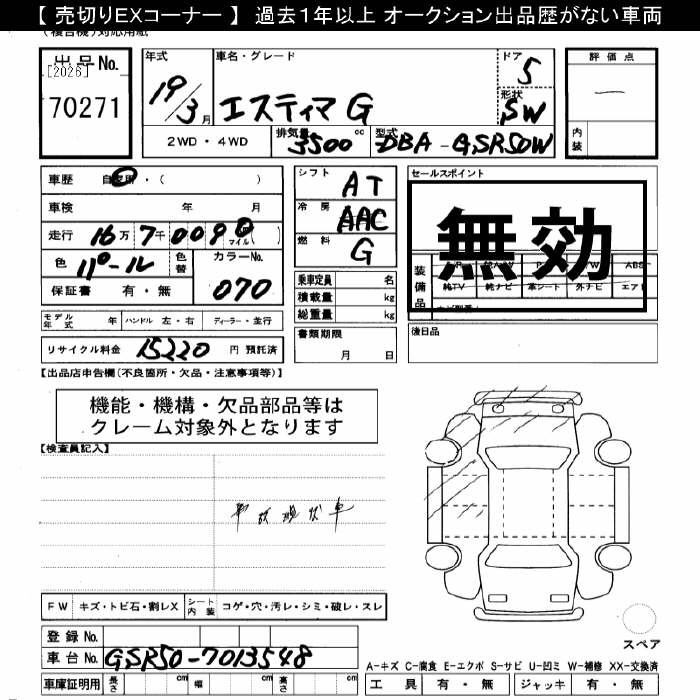 【 売切りEXコーナー 】 過去1年以上 オークション出品歴がない車両
(複合機)対応用紙
出品No.
[2026]
70271
年式 19/3月
車名・グレード
エスティマ G
ドア 5
形状 SW
2WD・4WD
排気量 3500cc
型式 DBA-GSR50W
評価点
—
内装
車歴 自家用・( )
車検 年 月
走行 16万7千0090 マイル( )
色 パール 色替 カラーNo. 070
保証書 有・無
モデル年式 年 ハンドル 左・右 ディーラー・並行
リサイクル料金 15220 円 預託済
シフト AT
冷房 AAC
燃料 G
乗車定員 名
積載量 kg
総重量 kg
書類期限
月 日
セールスポイント
無効
装備品
ABS
純TV 純ナビ 革シート 外ナビ エアB
後日品
【出品店申告欄(不良箇所・欠品・注意事項等)】
機能・機構・欠品部品等は
クレーム対象外となります
【検査員記入】
事故現状車
FW キズ・トビ石・割レX シート内装 コゲ・穴・汚レ・シミ・破レ・スレ
登録No.
車台No. GSR50-7013548
車庫証明用 長さ cm 幅 cm 高さ cm
スペア
A-キズ C-腐食 E-エクボ S-サビ U-凹ミ W-補修 XX-交換済
工具 有・無 ジャッキ 有・無